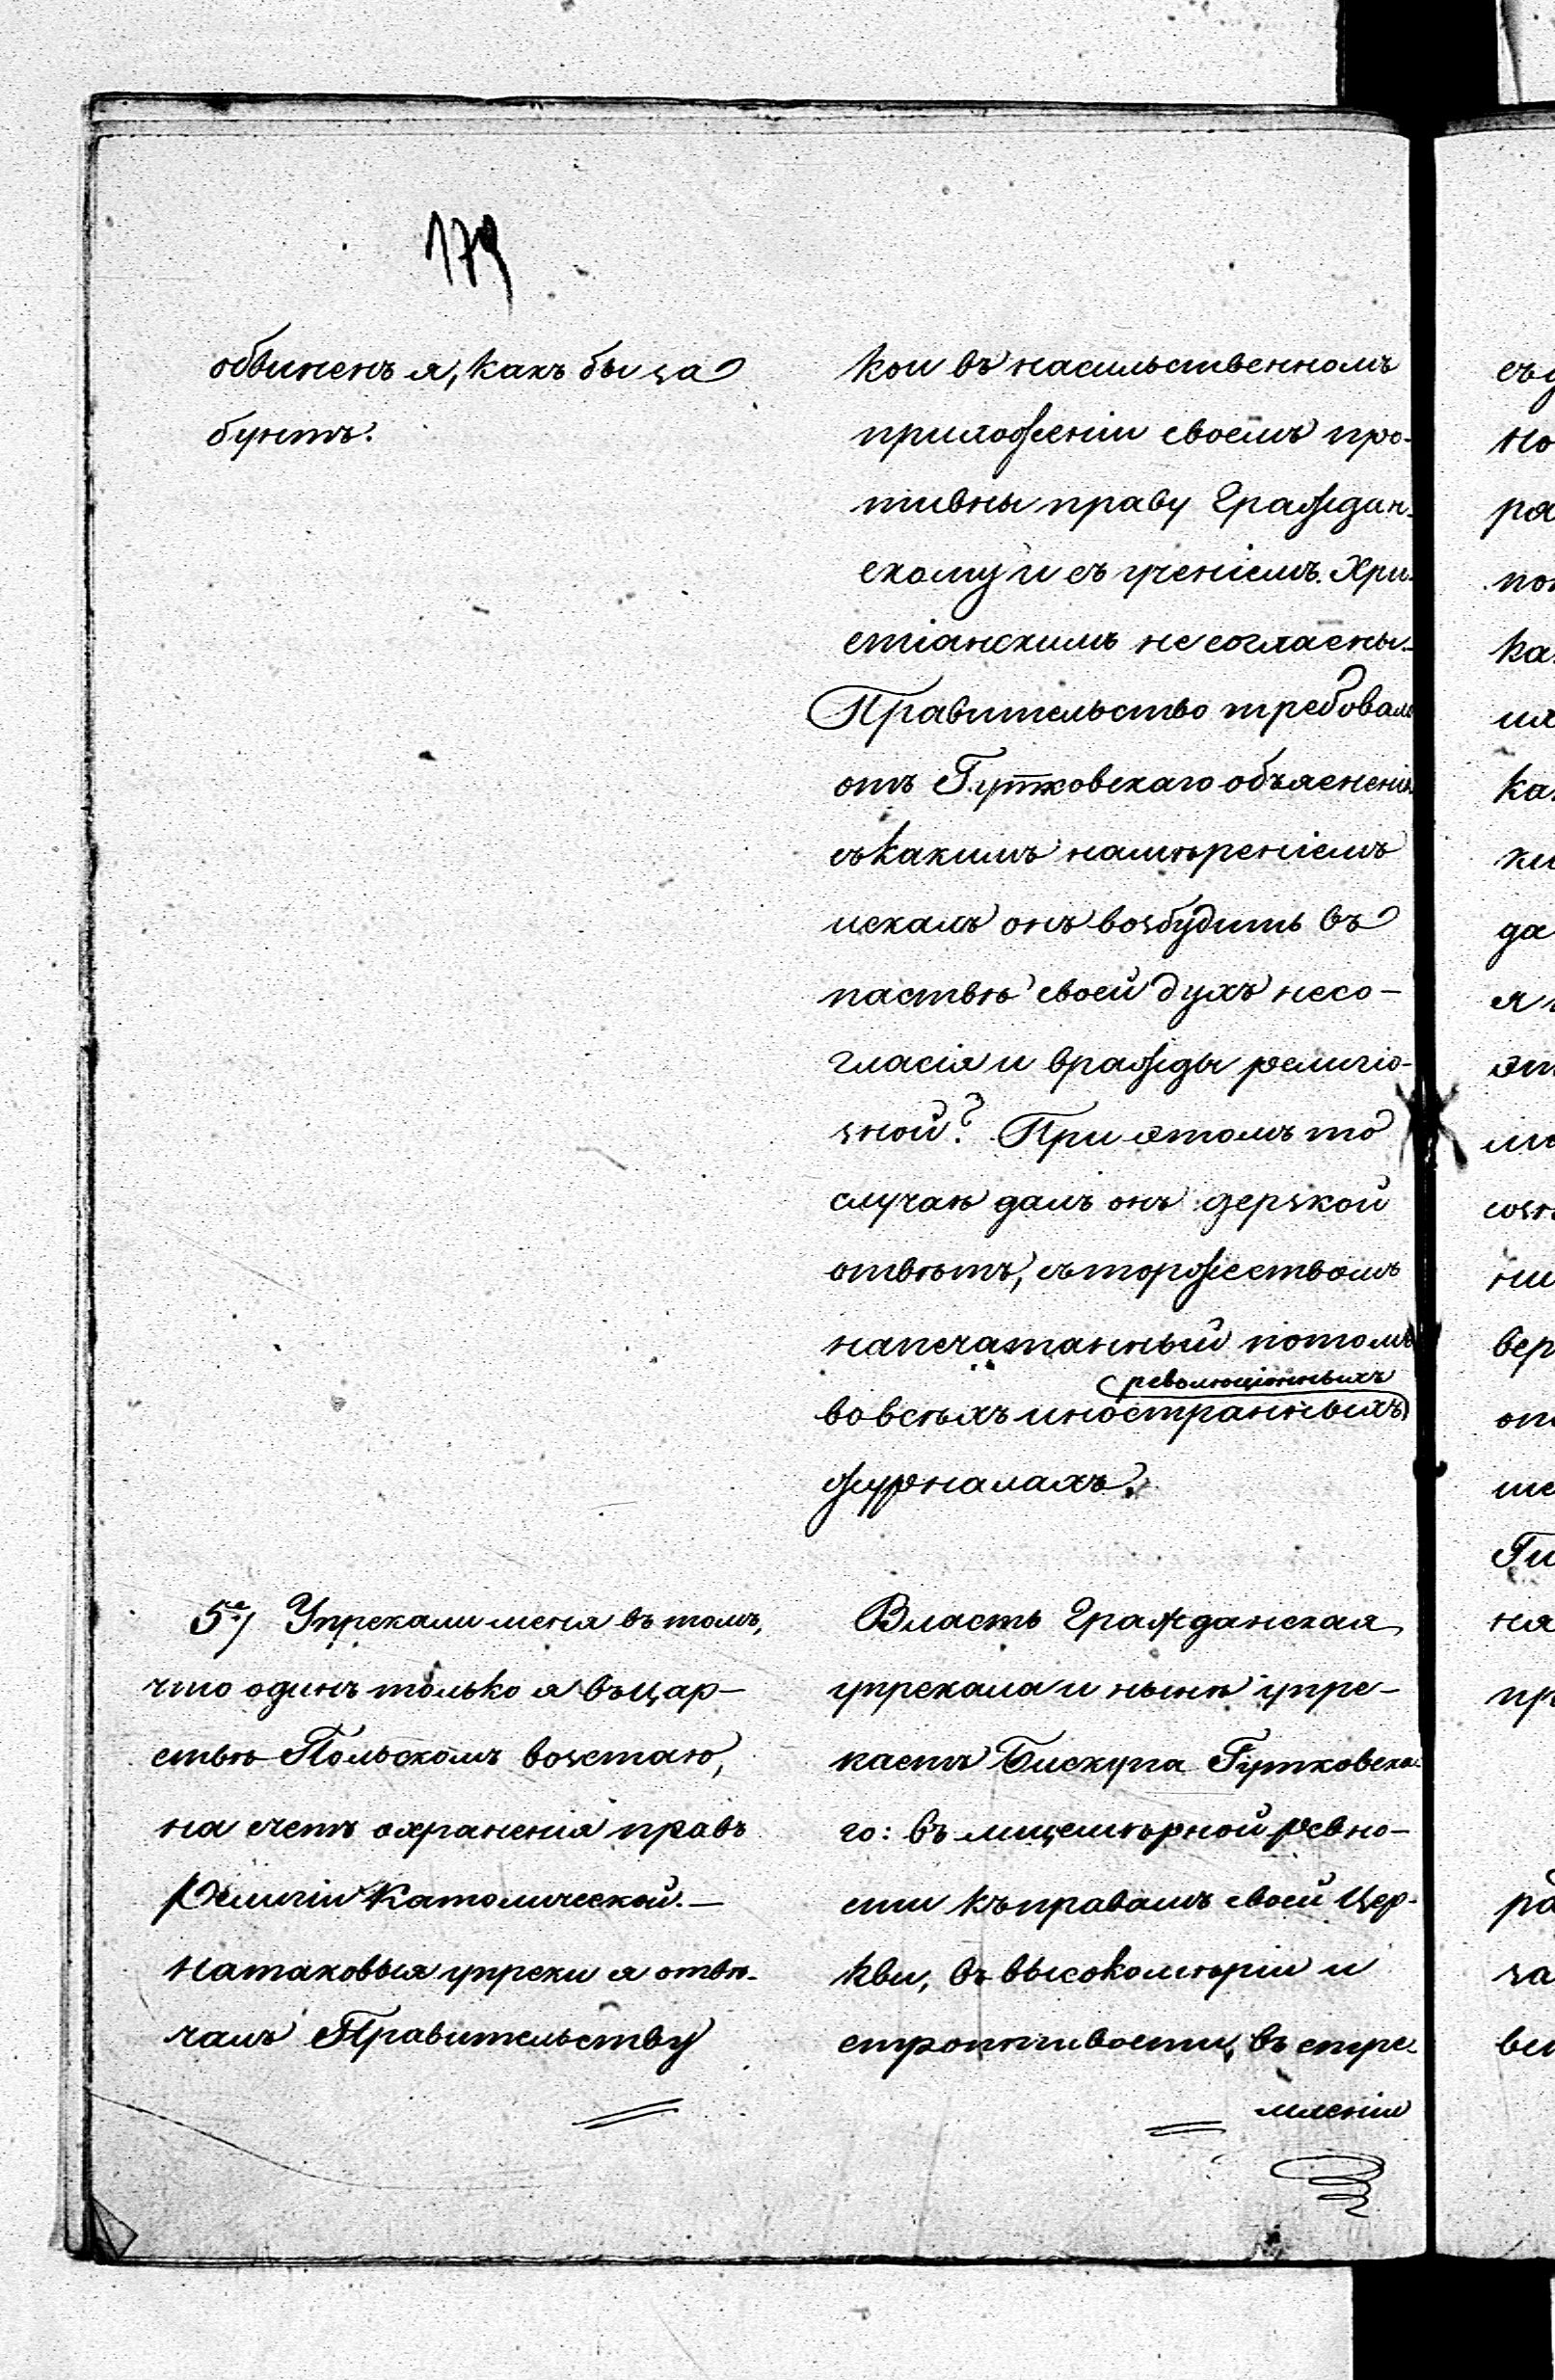 179
обвиненъ я, какъ бы за
бунтъ.
5е/ Упрекали меня въ томъ,
что одинъ только я въ Цар-
ствѣ Польскомъ возстаю,
на счетъ охраненія правъ
Религіи Католической.—
На таковыя упреки я отвѣ-
чалъ Правительству
кои въ насильственномъ
приложеніи своемъ про-
тивны праву Граждан-
скому и съ ученіемъ Хри-
стіанскимъ не согласны.
Правительство требовало
отъ Гутковскаго объясненія
съ какимъ намѣреніемъ
искалъ онъ возбудить въ
паствѣ своей духъ несо-
гласія и вражды религіо-
зной? При этомъ то
случаѣ далъ онъ дерзкой
отвѣтъ, съ торжествомъ
напечатанный потомъ
революціонныхъ
во всѣхъ иностранныхъ
журналахъ.
Власть Гражданская
упрекала и нынѣ упре-
каетъ Бискупа Гутковска-
го: въ лицемѣрной ревно-
сти къ правамъ своей Цер-
кви, въ высокомѣріи и
строптивости, въ стре-
мленіи
съ
но
ра
по
ка
ка
да
я
эт
ни
вер
от
ше
Ги
ня
пр
ра
за